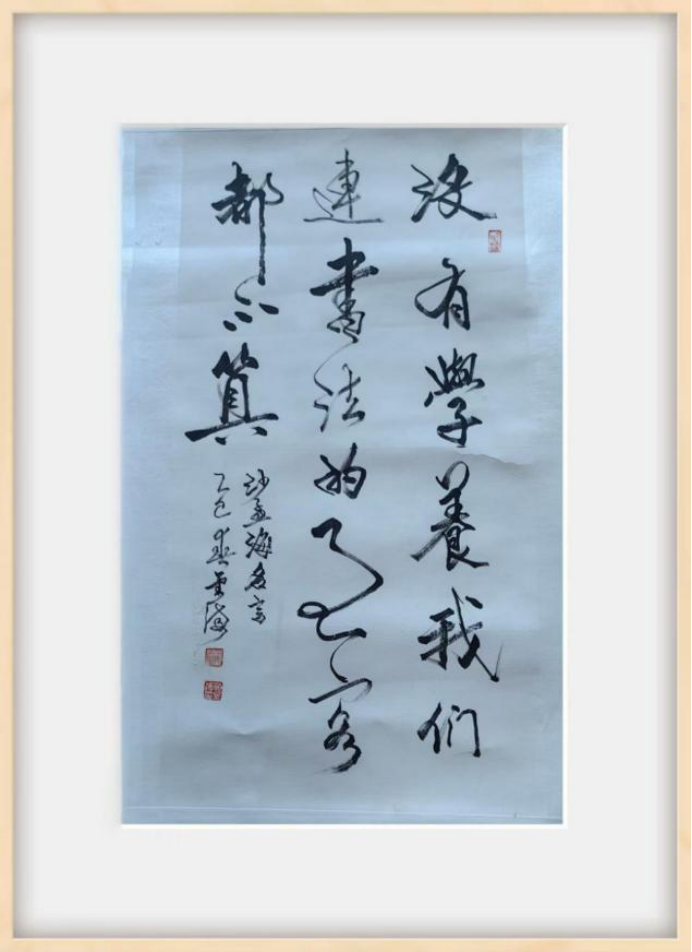 没有學養我们
連書法的過客
都不算
沙孟海名言
乙巳春